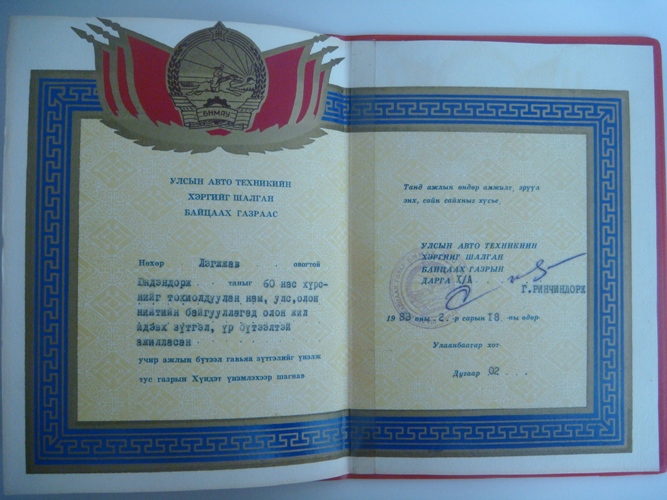 БНМАУ
УЛСЫН АВТО ТЕХНИКИЙН
ХЭРГИЙГ ШАЛГАН
БАЙЦААХ ГАЗРААС
Нөхөр Лэгжнав овогтой
таныг 60 нас хүрс-
нийг тохиолдуулан нам, улс, олон
нийтийн байгууллагад олон жил
идэвх зүтгэл, үр бүтээлтэй
ажилласан
учир ажлын бүтээл гавьяа зүтгэлийг үнэлж
тус газрын Хүндэт үнэмлэхээр шагнав.
Танд ажлын өндөр амжилт, эрүүл
энх, сайн сайхныг хүсье.
УЛСЫН АВТО ТЕХНИКИЙН
ХЭРГИЙГ ШАЛГАН
БАЙЦААХ ГАЗРЫН
ДАРГА Х/А
Г.РИНЧИНДОРЖ
1983 оны 2 -р сарын 18 -ны өдөр.
Улаанбаатар хот.
Дугаар 02